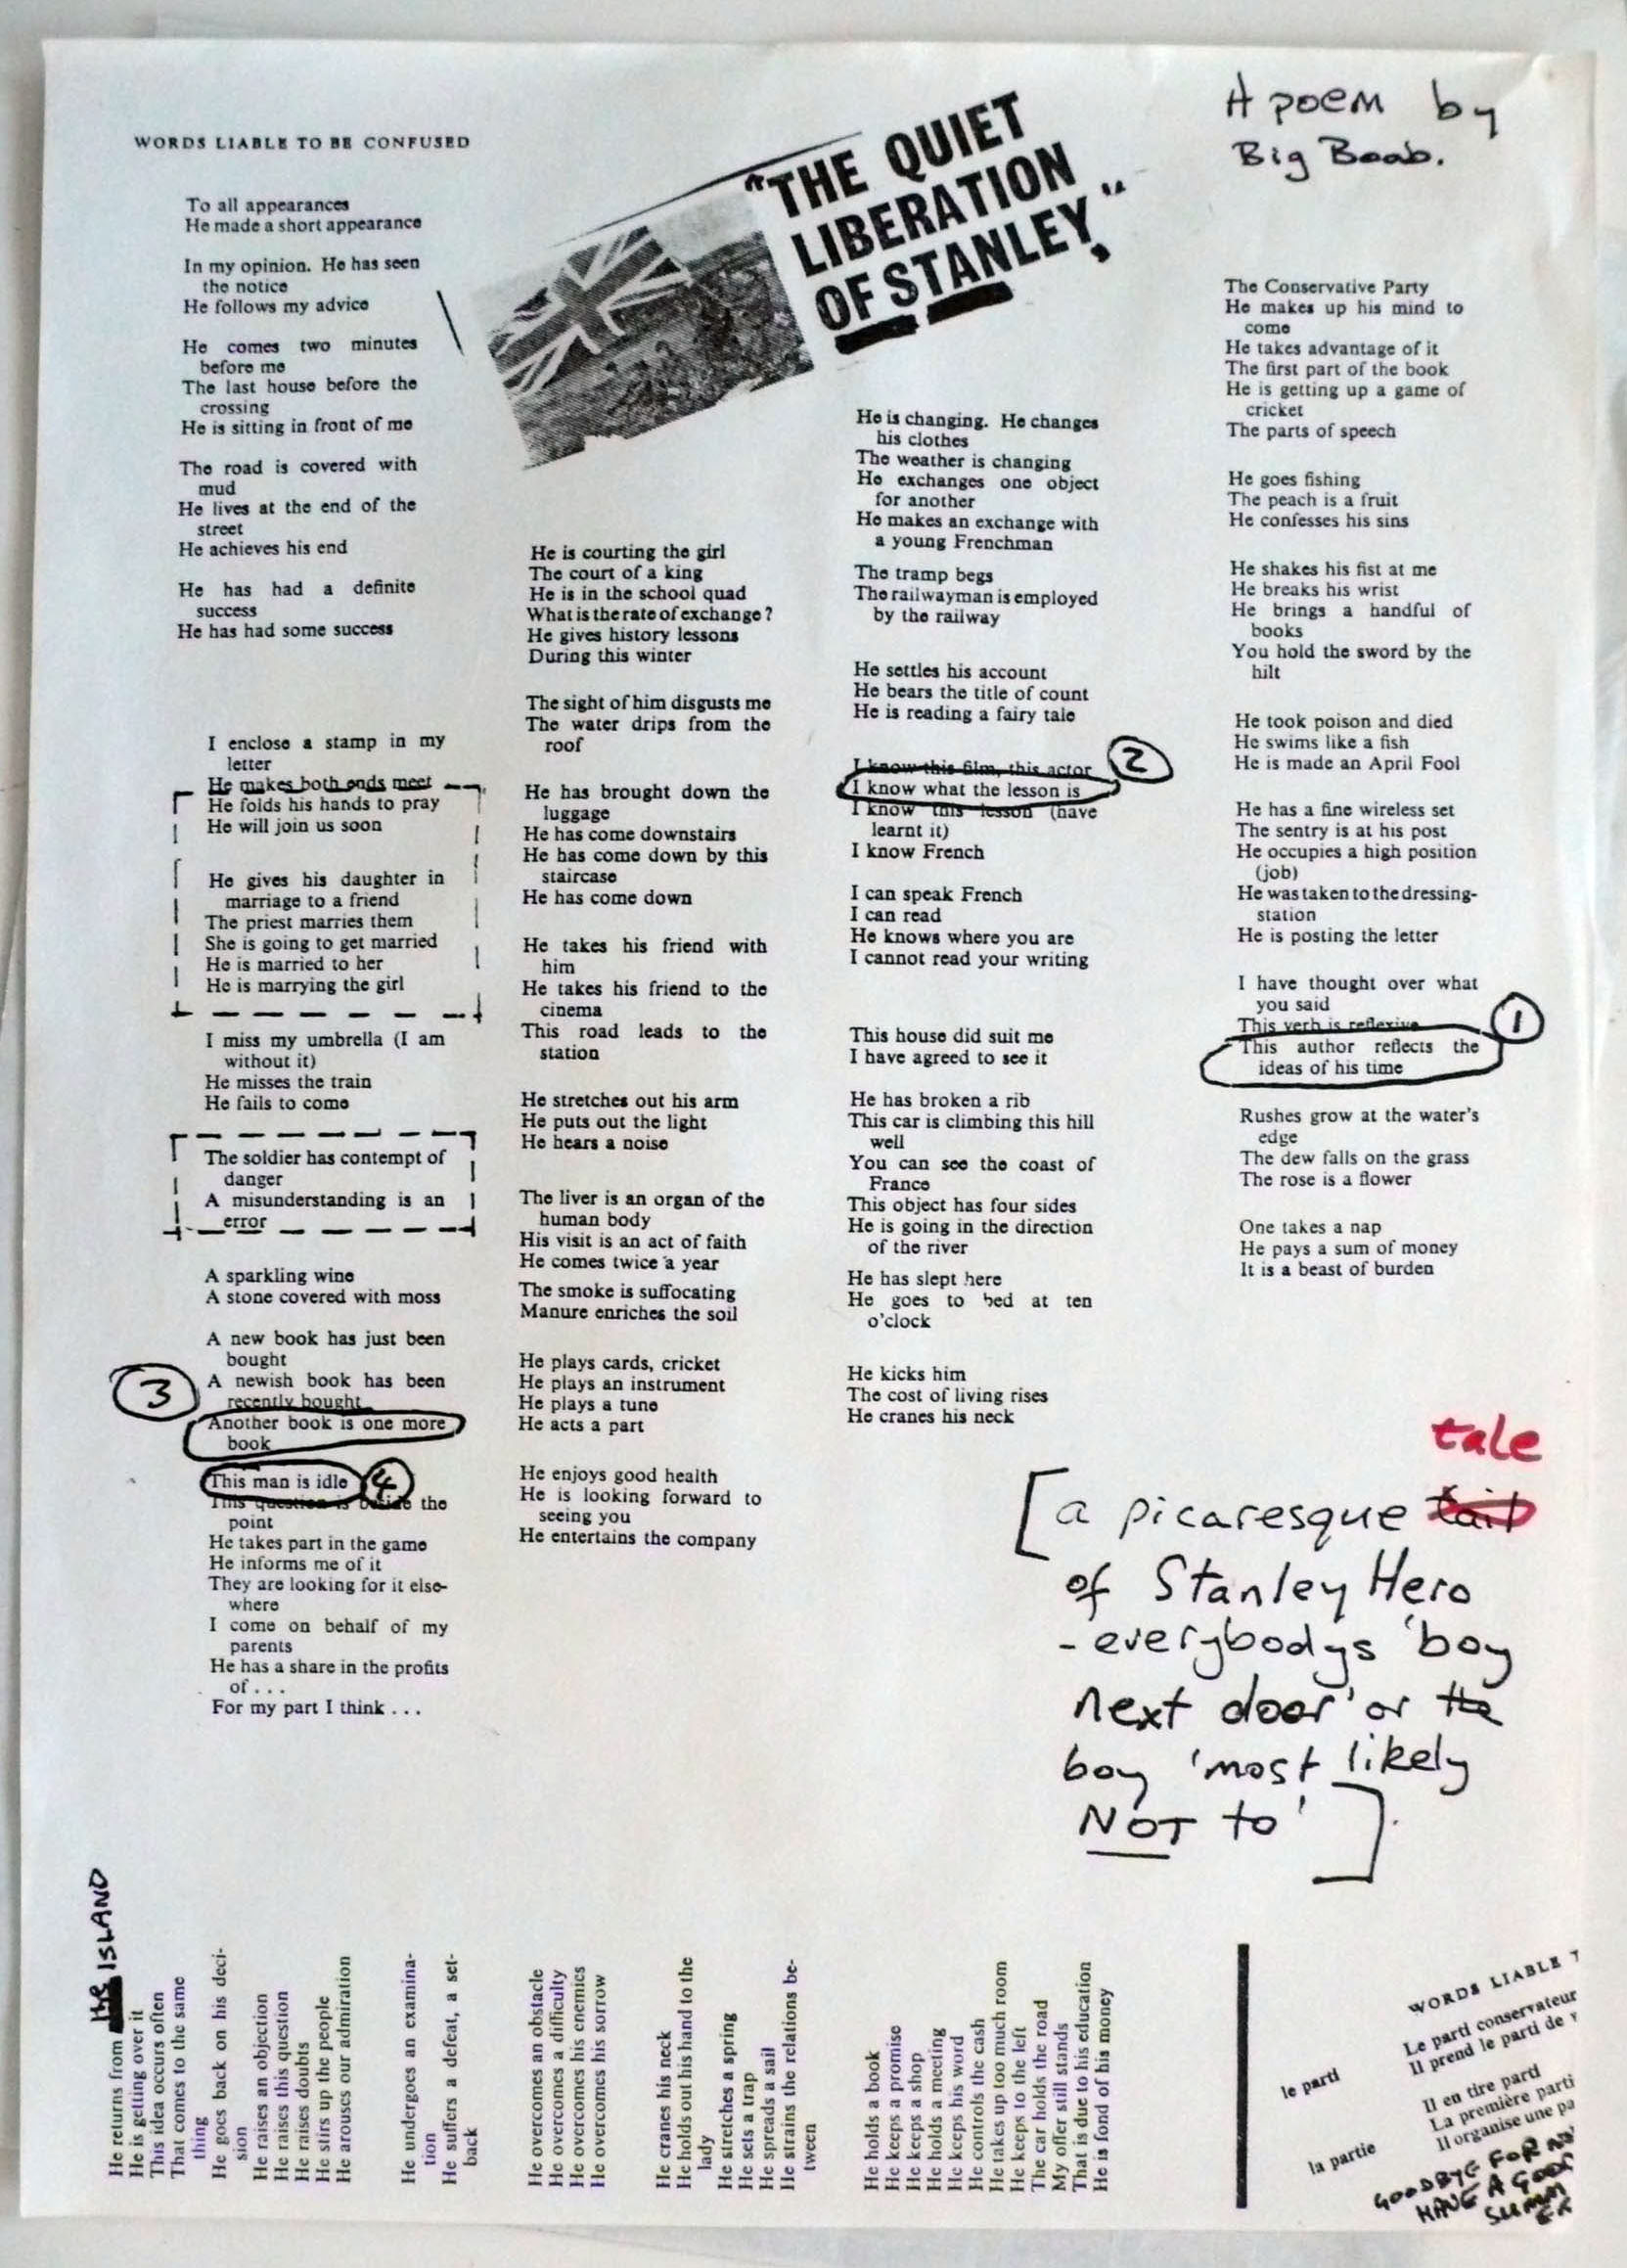 WORDS LIABLE TO BE CONFUSED
To all appearances
He made a short appearance
In my opinion. He has seen
the notice
He follows my advice
He comes two minutes
before me
The last house before the
crossing
He is sitting in front of me
The road is covered with
mud
He lives at the end of the
street
He achieves his end
He has had a definite
success
He has had some success
I enclose a stamp in my
letter
He makes both ends meet
He folds his hands to pray
He will join us soon
He gives his daughter in
marriage to a friend
The priest marries them
She is going to get married
He is married to her
He is marrying the girl
I miss my umbrella (I am
without it)
He misses the train
He fails to come
The soldier has contempt of
danger
A misunderstanding is an
error
A sparkling wine
A stone covered with moss
A new book has just been
bought
3
A newish book has been
recently bought
Another book is one more
book
This man is idle 4
This question is beside the
point
He takes part in the game
He informs me of it
They are looking for it else-
where
I come on behalf of my
parents
He has a share in the profits
of . . .
For my part I think . . .
"THE QUIET
LIBERATION
OF STANLEY,"
He is courting the girl
The court of a king
He is in the school quad
What is the rate of exchange?
He gives history lessons
During this winter
The sight of him disgusts me
The water drips from the
roof
He has brought down the
luggage
He has come downstairs
He has come down by this
staircase
He has come down
He takes his friend with
him
He takes his friend to the
cinema
This road leads to the
station
He stretches out his arm
He puts out the light
He hears a noise
The liver is an organ of the
human body
His visit is an act of faith
He comes twice a year
The smoke is suffocating
Manure enriches the soil
He plays cards, cricket
He plays an instrument
He plays a tune
He acts a part
He enjoys good health
He is looking forward to
seeing you
He entertains the company
He is changing. He changes
his clothes
The weather is changing
He exchanges one object
for another
He makes an exchange with
a young Frenchman
The tramp begs
The railwayman is employed
by the railway
He settles his account
He bears the title of count
He is reading a fairy tale
I know this film, this actor
2
I know what the lesson is
I know this lesson (have
learnt it)
I know French
I can speak French
I can read
He knows where you are
I cannot read your writing
This house did suit me
I have agreed to see it
He has broken a rib
This car is climbing this hill
well
You can see the coast of
France
This object has four sides
He is going in the direction
of the river
He has slept here
He goes to bed at ten
o'clock
He kicks him
The cost of living rises
He cranes his neck
A poem by
Big Boab.
The Conservative Party
He makes up his mind to
come
He takes advantage of it
The first part of the book
He is getting up a game of
cricket
The parts of speech
He goes fishing
The peach is a fruit
He confesses his sins
He shakes his fist at me
He breaks his wrist
He brings a handful of
books
You hold the sword by the
hilt
He took poison and died
He swims like a fish
He is made an April Fool
He has a fine wireless set
The sentry is at his post
He occupies a high position
(job)
He was taken to the dressing-
station
He is posting the letter
I have thought over what
you said
This verb is reflexive
1
This author reflects the
ideas of his time
Rushes grow at the water's
edge
The dew falls on the grass
The rose is a flower
One takes a nap
He pays a sum of money
It is a beast of burden
tale
[a picaresque tail
of Stanley Hero
- everybodys 'boy
next door' or the
boy 'most likely
NOT to']
He returns from the ISLAND
He is getting over it
This idea occurs often
That comes to the same
thing
He goes back on his deci-
sion
He raises an objection
He raises this question
He raises doubts
He stirs up the people
He arouses our admiration
He undergoes an examina-
tion
He suffers a defeat, a set-
back
He overcomes an obstacle
He overcomes a difficulty
He overcomes his enemies
He overcomes his sorrow
He cranes his neck
He holds out his hand to the
lady
He stretches a spring
He sets a trap
He spreads a sail
He strains the relations be-
tween
He holds a book
He keeps a promise
He keeps a shop
He holds a meeting
He keeps his word
He controls the cash
He takes up too much room
He keeps to the left
The car holds the road
My offer still stands
That is due to his education
He is fond of his money
WORDS LIABLE T
Le parti conservateur
Il prend le parti de v
le parti
Il en tire parti
La première parti
Il organise une pa
la partie
GOODBYE FOR NOW
HAVE A GOOD
SUMM
ER